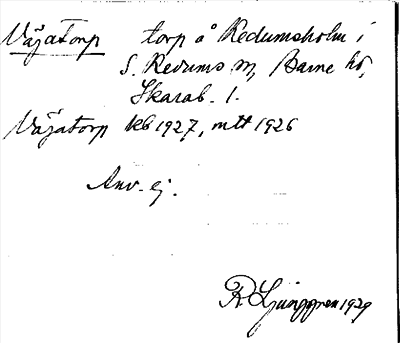 Väjatorp torp å Redumsholm i
S. Redums sn, Barne hd,
Skarab. l.
Väjatorp kb 1927, mtl 1926
Anv. ej.
R Ljunggren 1929